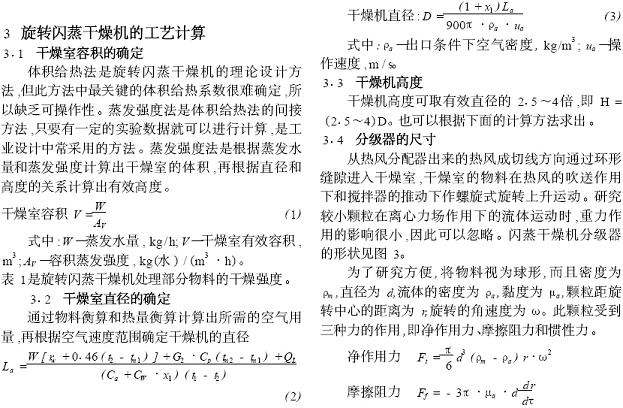 3 旋转闪蒸干燥机的工艺计算
3.1 干燥室容积的确定
体积给热法是旋转闪蒸干燥机的理论设计方
法,但此方法中最关键的体积给热系数很难确定,所
以缺乏可操作性。蒸发强度法是体积给热法的间接
方法,只要有一定的实验数据就可以进行计算,是工
业设计中常采用的方法。蒸发强度法是根据蒸发水
量和蒸发强度计算出干燥室的体积,再根据直径和
高度的关系计算出有效高度。
干燥室容积 V = W/A_V (1)
式中:W—蒸发水量,kg/h;V—干燥室有效容积,
m³;A_V—容积蒸发强度,kg(水)/(m³·h)。
表1是旋转闪蒸干燥机处理部分物料的干燥强度。
3.2 干燥室直径的确定
通过物料衡算和热量衡算计算出所需的空气用
量,再根据空气速度范围确定干燥机的直径
(2)
干燥机直径:D = (1+x₁)L_a / 900π·ρ_a·u_a (3)
式中:ρ_a—出口条件下空气密度,kg/m³;u_a—操
作速度,m/s。
3.3 干燥机高度
干燥机高度可取有效直径的 2.5~4倍,即 H=
(2.5~4)D。也可以根据下面的计算方法求出。
3.4 分级器的尺寸
从热风分配器出来的热风成切线方向通过环形
缝隙进入干燥室,干燥室的物料在热风的吹送作用
下和搅拌器的推动下作螺旋式旋转上升运动。研究
较小颗粒在离心力场作用下的流体运动时,重力作
用的影响很小,因此可以忽略。闪蒸干燥机分级器
的形状见图 3。
为了研究方便,将物料视为球形,而且密度为
ρ_m,直径为 d,流体的密度为 ρ_a,黏度为 μ_a,颗粒距旋
转中心的距离为 r,旋转的角速度为 ω。此颗粒受到
三种力的作用,即净作用力、摩擦阻力和惯性力。
净作用力 F_t = π/6 d³(ρ_m - ρ_a) r·ω²
摩擦阻力 F_f = -3π·μ_a·d dr/dτ